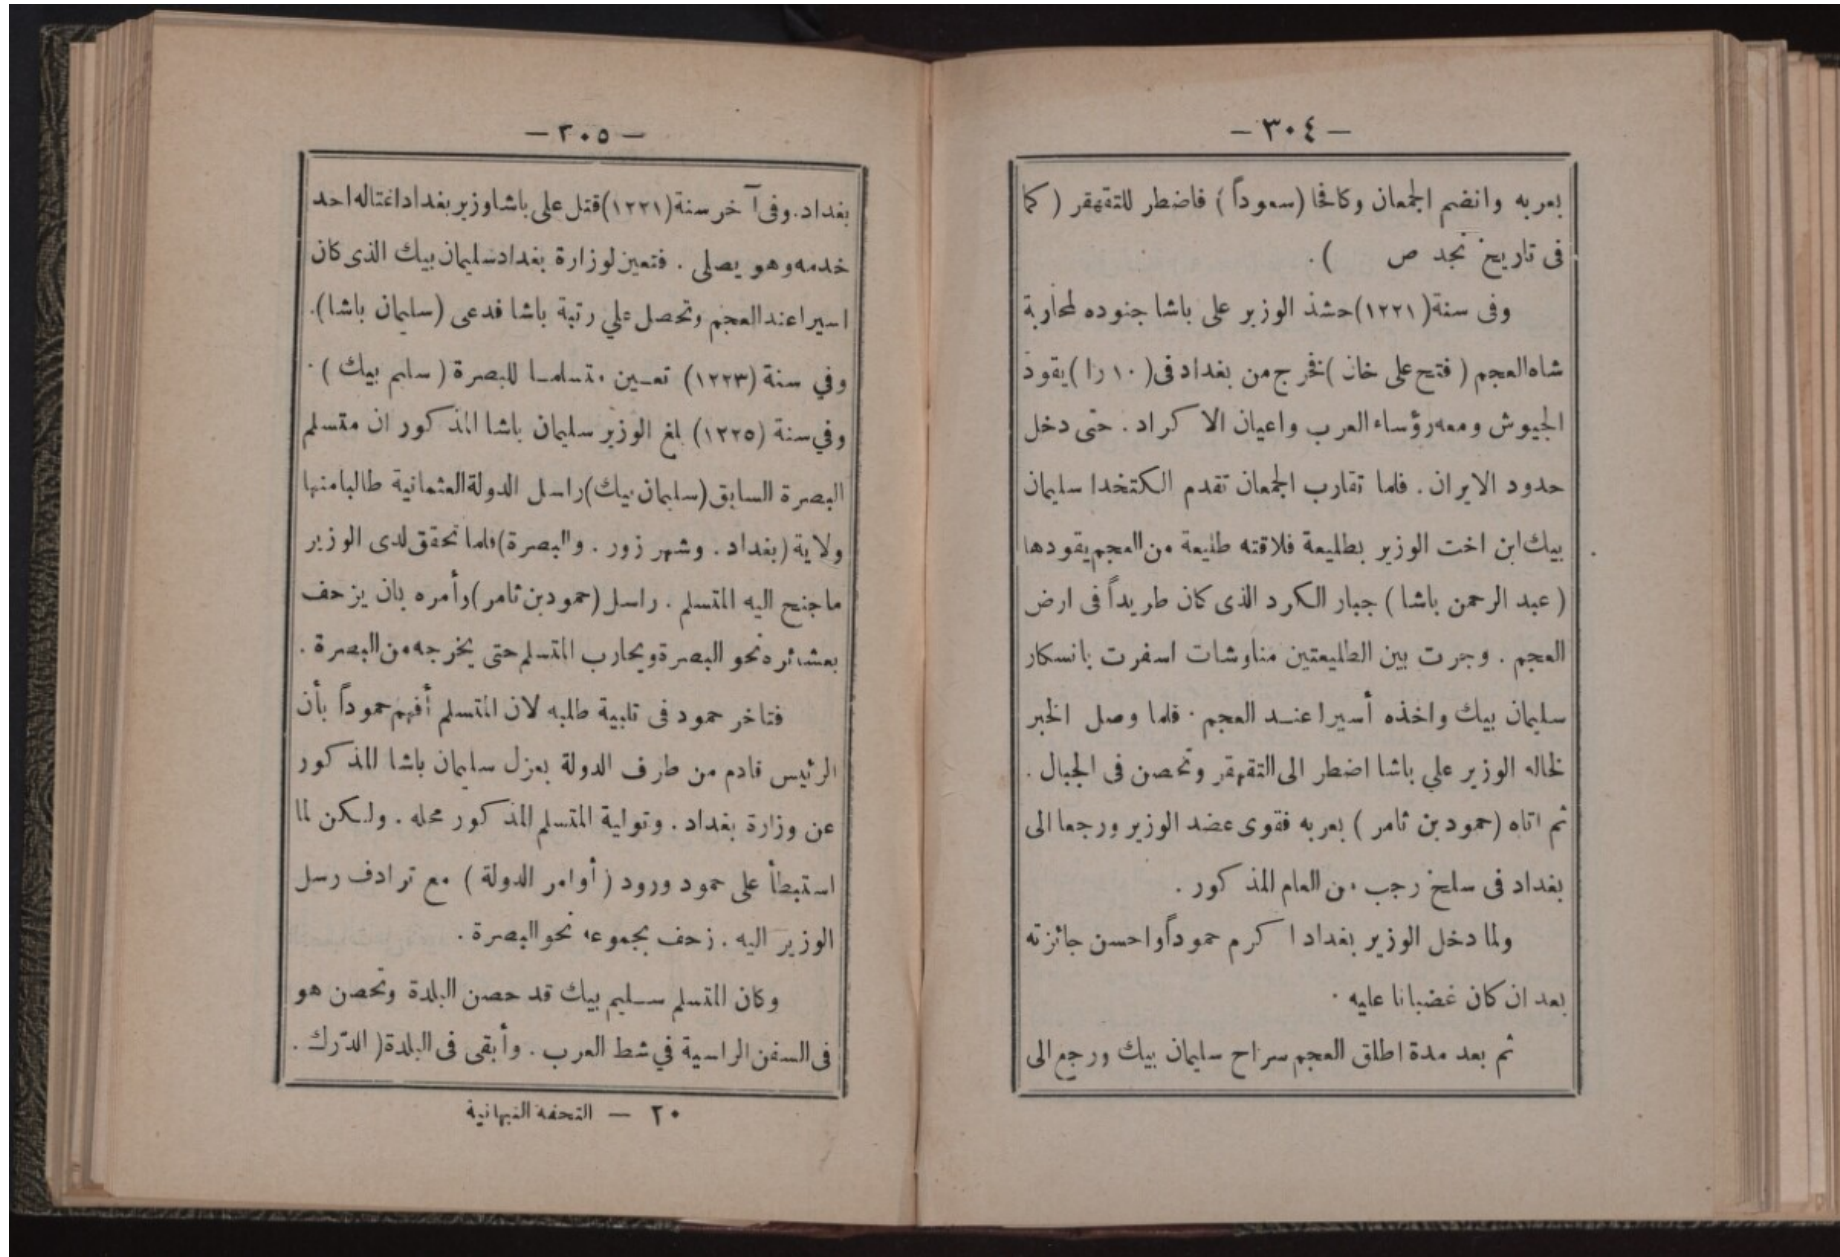 — ٣٠٤ —
بعربه وانضم الجمعان وكافحا (سعوداً) فاضطر للتقهقر ( كما
فى تاريخ نجد ص ) .
وفى سنة (١٢٢١) حشد الوزير على باشا جنوده لمحاربة
شاه العجم ( فتح على خان ) فخرج من بغداد فى (١٠ را) يقود
الجيوش ومعه رؤساء العرب واعيان الاكراد . حتى دخل
حدود الايران . فلما تقارب الجمعان تقدم الكتخدا سليمان
بيك ابن اخت الوزير بطليعة فلاقته طليعة من العجم يقودها
( عبد الرحمن باشا ) جبار الكرد الذى كان طريداً فى ارض
العجم . وجرت بين الطليعتين مناوشات اسفرت بانسكار
سليمان بيك واخذه أسيرا عند العجم . فلما وصل الخبر
لخاله الوزير علي باشا اضطر الى التقهقر وتحصن فى الجبال .
ثم اتاه (حمود بن ثامر ) بعربه فقوى عضد الوزير ورجعا الى
بغداد فى سلخ رجب من العام المذكور .
ولما دخل الوزير بغداد اكرم حموداً واحسن جائزته
بعد ان كان غضبانا عليه .
ثم بعد مدة اطلق العجم سراح سليمان بيك ورجع الى
— ٣٠٥ —
بغداد . وفى آخر سنة (١٢٢١) قتل على باشا وزير بغداد اغتاله احد
خدمه وهو يصلى . فتعين لوزارة بغداد سليمان بيك الذى كان
اسيرا عند العجم وتحصل علي رتبة باشا فدعى (سليمان باشا) .
وفي سنة (١٢٢٣) تعين متسلما للبصرة ( سليم بيك ) .
وفي سنة (١٢٢٥) بلغ الوزير سليمان باشا المذكور ان متسلم
البصرة السابق (سليمان بيك) راسل الدولة العثمانية طالبا منها
ولاية (بغداد . وشهر زور . والبصرة) فلما تحقق لدى الوزير
ما جنح اليه المتسلم . راسل (حمود بن ثامر) وأمره بان يزحف
بعشائره نحو البصرة ويحارب المتسلم حتى يخرجه من البصرة .
فتاخر حمود فى تلبية طلبه لان المتسلم أفهم حموداً بأن
الرئيس قادم من طرف الدولة بعزل سليمان باشا المذكور
عن وزارة بغداد . وتولية المتسلم المذكور محله . ولكن لما
استبطأ على حمود ورود ( أوامر الدولة ) مع ترادف رسل
الوزير اليه . زحف بجموعه نحو البصرة .
وكان المتسلم سليم بيك قد حصن البلدة وتحصن هو
فى السفن الراسية في شط العرب . وأبقى فى البلدة ( الدرك .
٢٠ — التحفة النبهانية